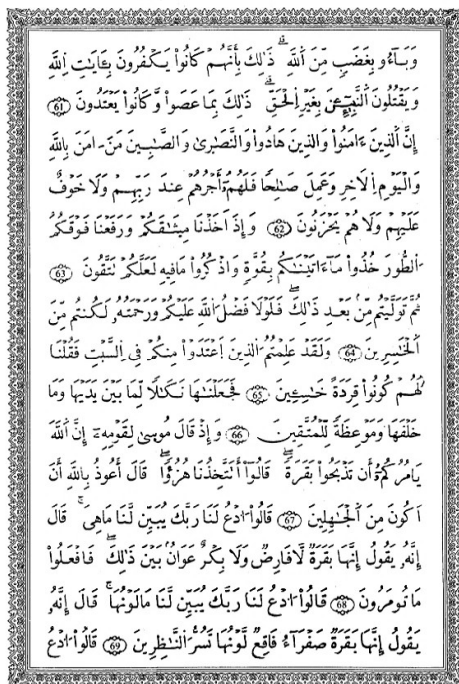 وَبَآءُو بِغَضَبٍ مِّنَ اَ۬للَّهِۖ ذَٰلِكَ بِأَنَّهُمْ كَانُواْ يَكْفُرُونَ بِـَٔايَٰتِ اِ۬للَّهِ
وَيَقْتُلُونَ اَ۬لنَّبِيٓـِٕۧنَ بِغَيْرِ اِ۬لْحَقِّۖ ذَٰلِكَ بِمَا عَصَواْ وَّكَانُواْ يَعْتَدُونَ 61
إِنَّ اَ۬لذِينَ ءَامَنُواْ وَالذِينَ هَادُواْ وَالنَّصَٰرَىٰ وَالصَّٰبِينَ مَنَ اٰمَنَ بِاللَّهِ
وَالْيَوْمِ اِ۬لَاخِرِ وَعَمِلَ صَٰلِحًا فَلَهُمُۥٓ أَجْرُهُمْ عِندَ رَبِّهِمْ وَلَا خَوْفٌ
عَلَيْهِمْ وَلَا هُمْ يَحْزَنُونَ 62 وَإِذَ اَخَذْنَا مِيثَٰقَكُمْ وَرَفَعْنَا فَوْقَكُمُ
اُ۬لطُّورَ خُذُواْ مَآ ءَاتَيْنَٰكُم بِقُوَّةٍ وَاذْكُرُواْ مَا فِيهِ لَعَلَّكُمْ تَتَّقُونَ 63
ثُمَّ تَوَلَّيْتُم مِّنۢ بَعْدِ ذَٰلِكَۖ فَلَوْلَا فَضْلُ اُ۬للَّهِ عَلَيْكُمْ وَرَحْمَتُهُۥ لَكُنتُم مِّنَ
اَ۬لْخَٰسِرِينَ 64 وَلَقَدْ عَلِمْتُمُ اُ۬لذِينَ اَ۪عْتَدَوْاْ مِنكُمْ فِي اِ۬لسَّبْتِ فَقُلْنَا
لَهُمْ كُونُواْ قِرَدَةً خَٰسِـِٕينَ 65 فَجَعَلْنَٰهَا نَكَٰلًا لِّمَا بَيْنَ يَدَيْهَا وَمَا
خَلْفَهَا وَمَوْعِظَةً لِّلْمُتَّقِينَ 66 وَإِذْ قَالَ مُوسَىٰ لِقَوْمِهِۦٓ إِنَّ اَ۬للَّهَ
يَامُرُكُمُۥٓ أَن تَذْبَحُواْ بَقَرَةًۖ قَالُوٓاْ أَتَتَّخِذُنَا هُزُؤًاۖ قَالَ أَعُوذُ بِاللَّهِ أَنَ
اَكُونَ مِنَ اَ۬لْجَٰهِلِينَ 67 قَالُواْ اُ۟دْعُ لَنَا رَبَّكَ يُبَيِّن لَّنَا مَا هِيَۖ قَالَ
إِنَّهُۥ يَقُولُ إِنَّهَا بَقَرَةٌ لَّا فَارِضٌ وَلَا بِكْرٌ عَوَانٌۢ بَيْنَ ذَٰلِكَۖ فَافْعَلُواْ
مَا تُومَرُونَ 68 قَالُواْ اُ۟دْعُ لَنَا رَبَّكَ يُبَيِّن لَّنَا مَا لَوْنُهَاۖ قَالَ إِنَّهُۥ
يَقُولُ إِنَّهَا بَقَرَةٌ صَفْرَآءُ فَاقِعٌ لَّوْنُهَا تَسُرُّ اُ۬لنَّٰظِرِينَ 69 قَالُواْ اُ۟دْعُ